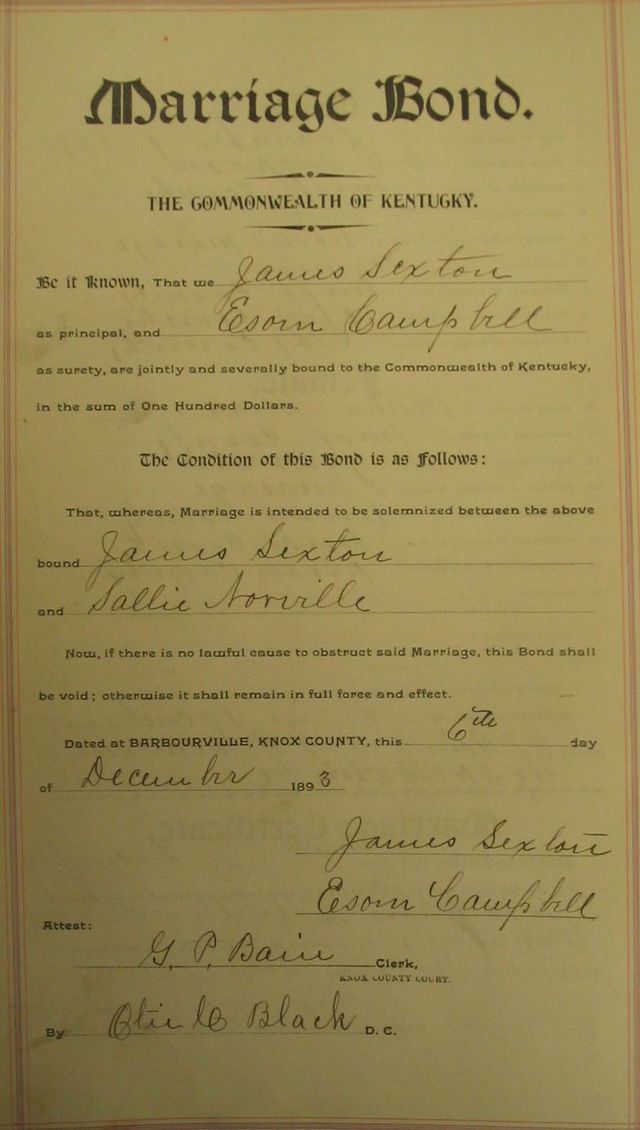 Marriage Bond.
THE COMMONWEALTH OF KENTUCKY.
Be it Known, That we James Sexton
as principal, and Esom Campbell
as surety, are jointly and severally bound to the Commonwealth of Kentucky,
in the sum of One Hundred Dollars.
The Condition of this Bond is as Follows:
That, whereas, Marriage is intended to be solemnized between the above
bound James Sexton
and Sallie Norville
Now, if there is no lawful cause to obstruct said Marriage, this Bond shall
be void; otherwise it shall remain in full force and effect.
Dated at BARBOURVILLE, KNOX COUNTY, this 6th day
of December 1893
James Sexton
Esom Campbell
Attest:
G. P. Bain Clerk,
KNOX COUNTY COURT.
By Black D. C.